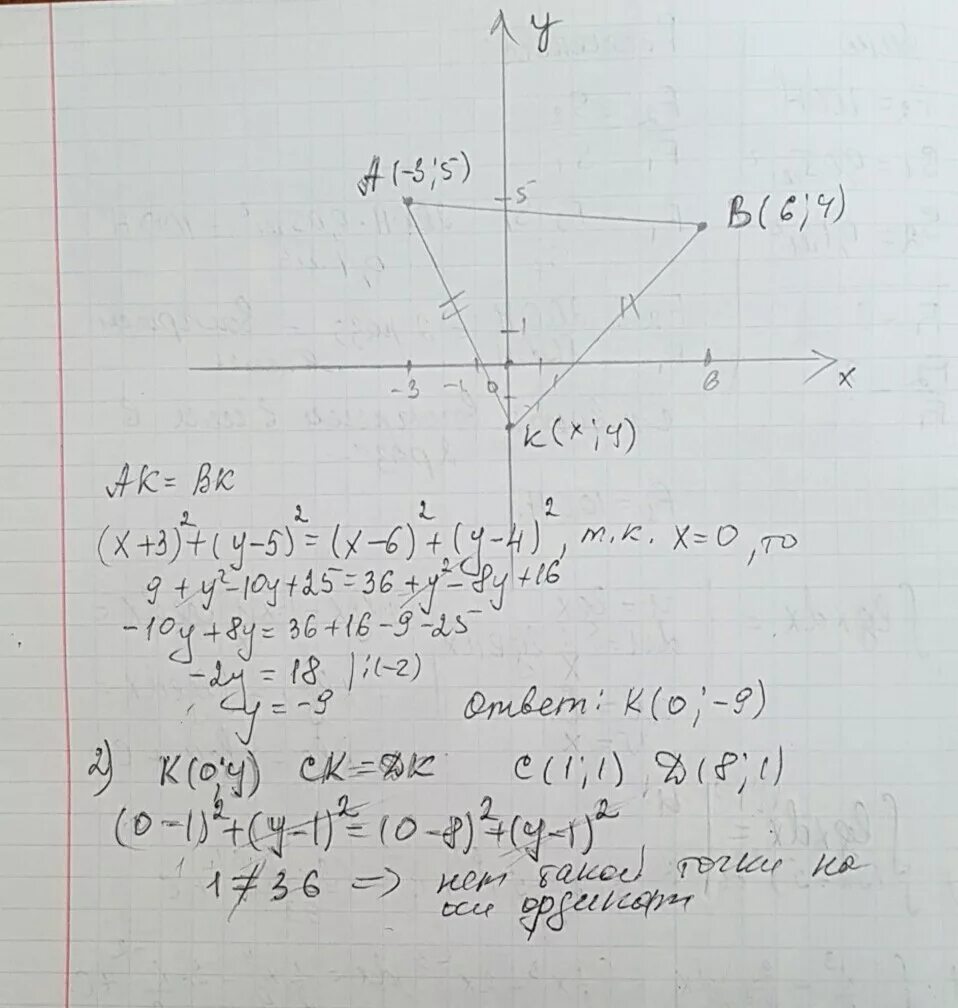 y
A(-3;5)
5
B(6;4)
1
-3 -1 0 6 x
K(x;y)
AK = BK
(x+3)²+(y-5)²=(x-6)²+(y-4)², т.к. x=0, то
9+y²-10y+25=36+y²-8y+16
-10y+8y=36+16-9-25
-2y=18 |:(-2)
y=-9 Ответ: K(0;-9)
2) K(0;y) CK=ДK C(1;1) Д(8;1)
(0-1)²+(y-1)²=(0-8)²+(y-1)²
1≠36 => нет такой точки на
оси ординат